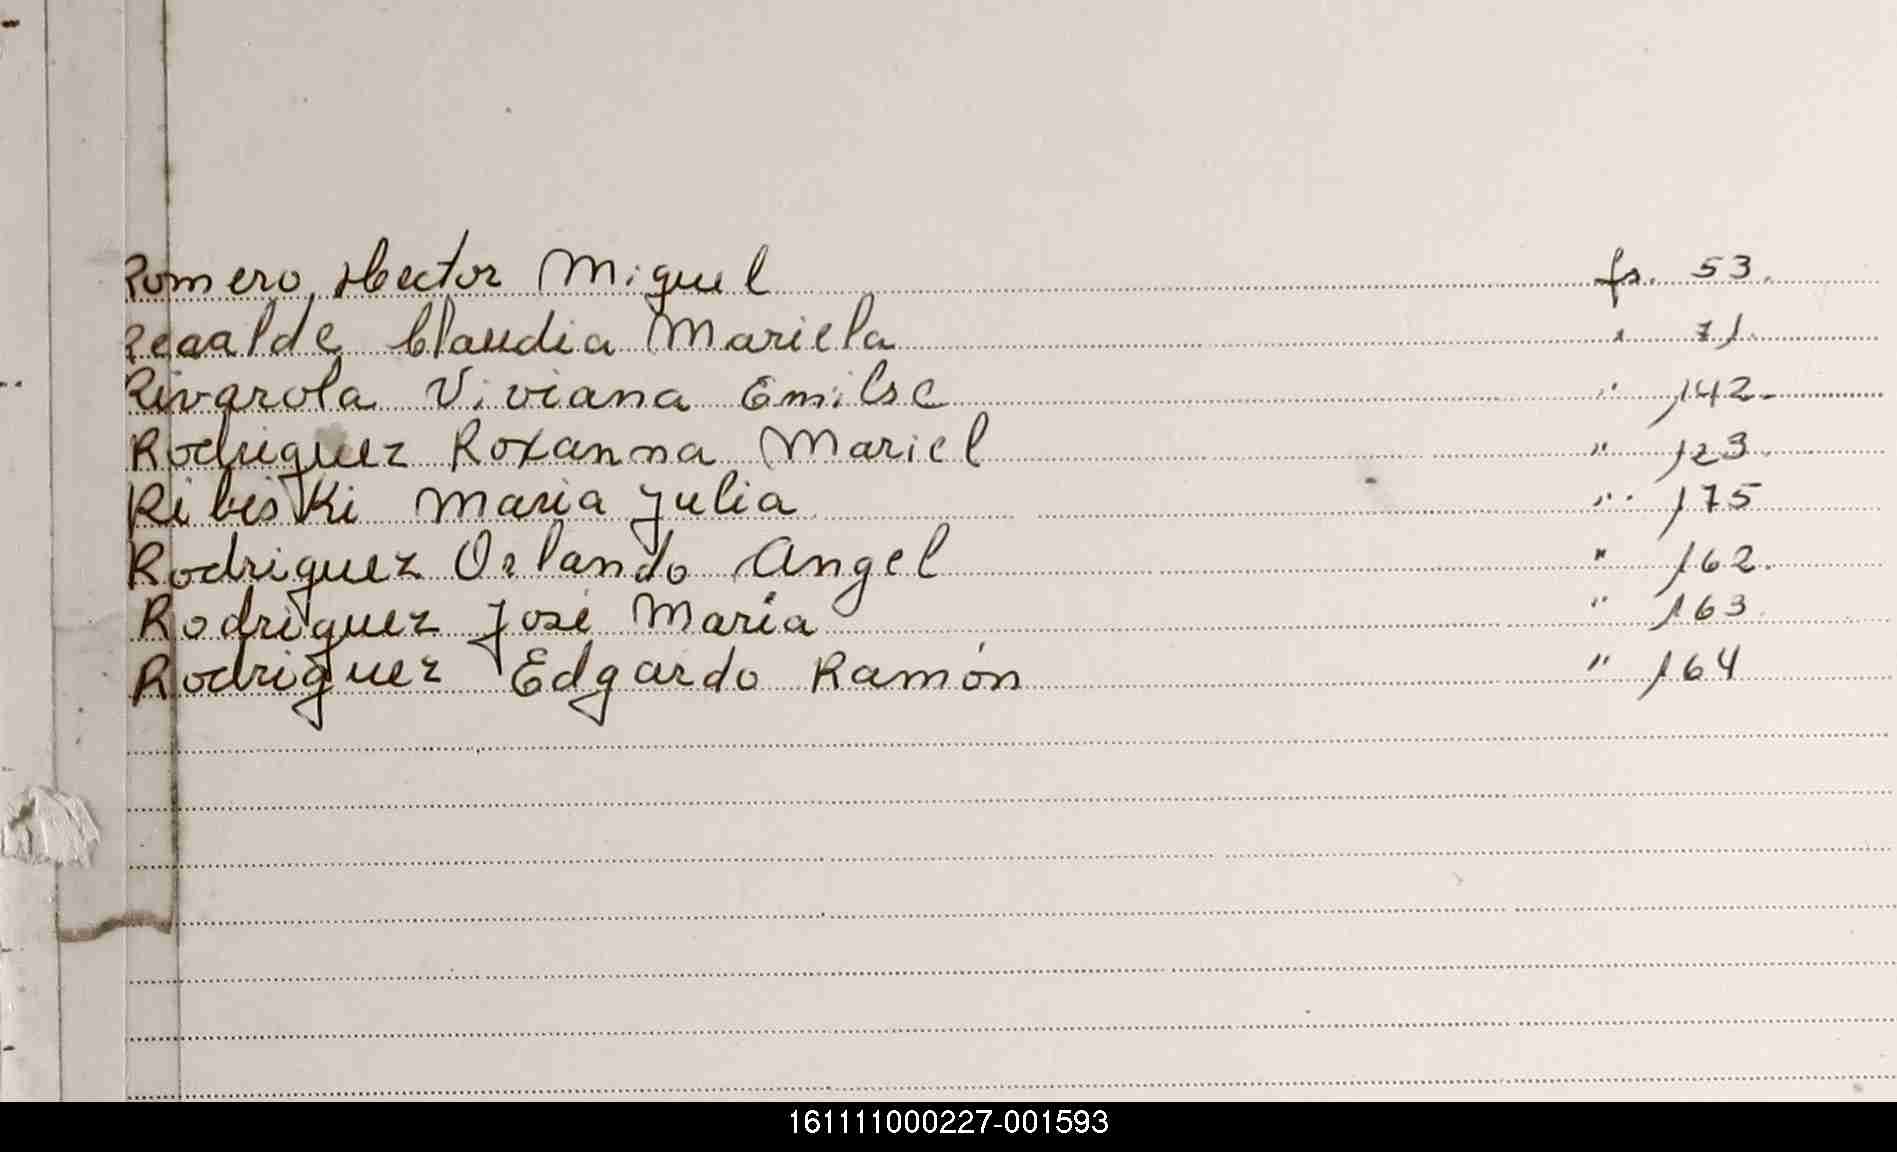 Romero, Hector Miguel fs. 53.
Recalde Claudia Mariela " 71.
Rivarola Viviana Emilse " 142.
Rodriguez Roxanna Mariel " 123.
Ribeski Maria Julia " 175
Rodriguez Orlando Angel " 162.
Rodriguez José Maria " 163.
Rodriguez Edgardo Ramón " 164
161111000227-001593